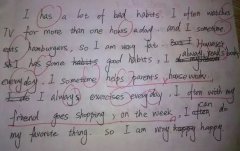 I has a lot of bad habits. I often watches
TV for more than one hours a day and I sometime
eats hamburgers, so I am very fat. But I
I has some good habits, I always reads book
everyday. I sometime helps parents housework.
I always exercises everyday. I often with my
friend goes shopping on the week. I often can do
my favorite thing. so I am very happy